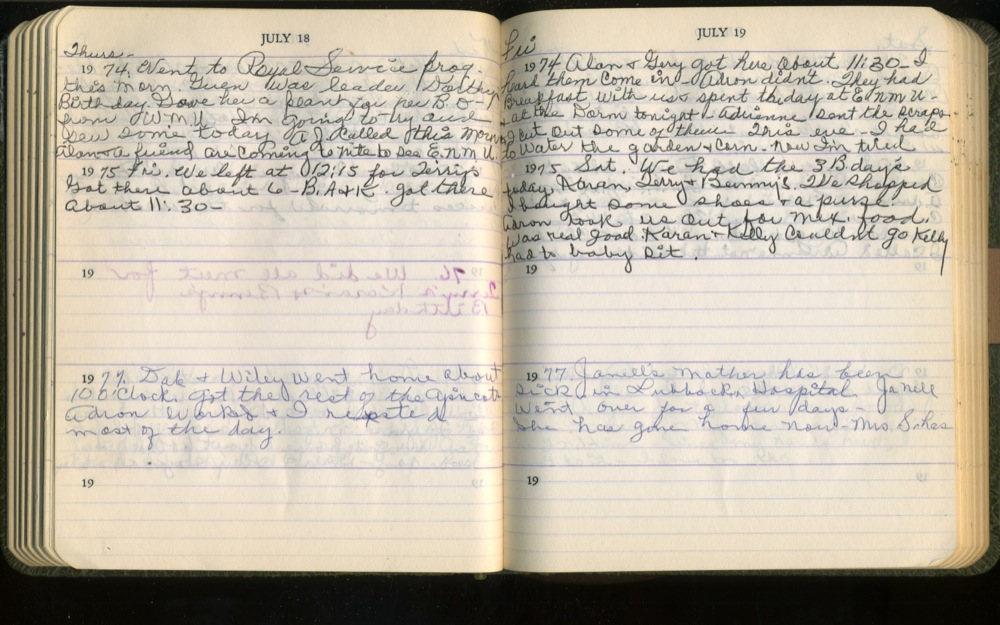 JULY 18
Thurs-
1974. Went to Royal Service prog.
this morn. Guen was leader. Dorthy
Birthday. I gave her a plant for her B.D-
from W.M.U. I'm going to try and
sew some today. A J. called this morn
Alan & a friend are coming to nite to see E.N.M.U.
1975 Fri. We left at 12:15 for Terry's
Got there about 6. B.A & K. got there
about 11:30-
19
1977. Dak & Wiley went home about
10 o'clock. Got the rest of the
Adron worked & I rested
most of the day.
19
JULY 19
Fri
1974 Alan & Gery got here about 11:30 - I
heard them come in - Adron didn't. They had
Breakfast with us & spent the day at E.N.M.U-
at the Dorm tonight. Adrienne sent the scraps
I cut out some of them this eve - I had
to water the garden & corn. Now I'm tired
1975. Sat. We had the 3 B days
today, Karan, Terry & Benny's. We shopped
I bought some shoes & a purse
Aaron took us out for mex. food.
Was real good. Karan & Kelly couldn't go Kelly
had to baby sit.
19
1977 Janell's mother has been
sick in Lubbock Hospital. Janell
went over for a few days-
She has gone home now - Mrs.
19